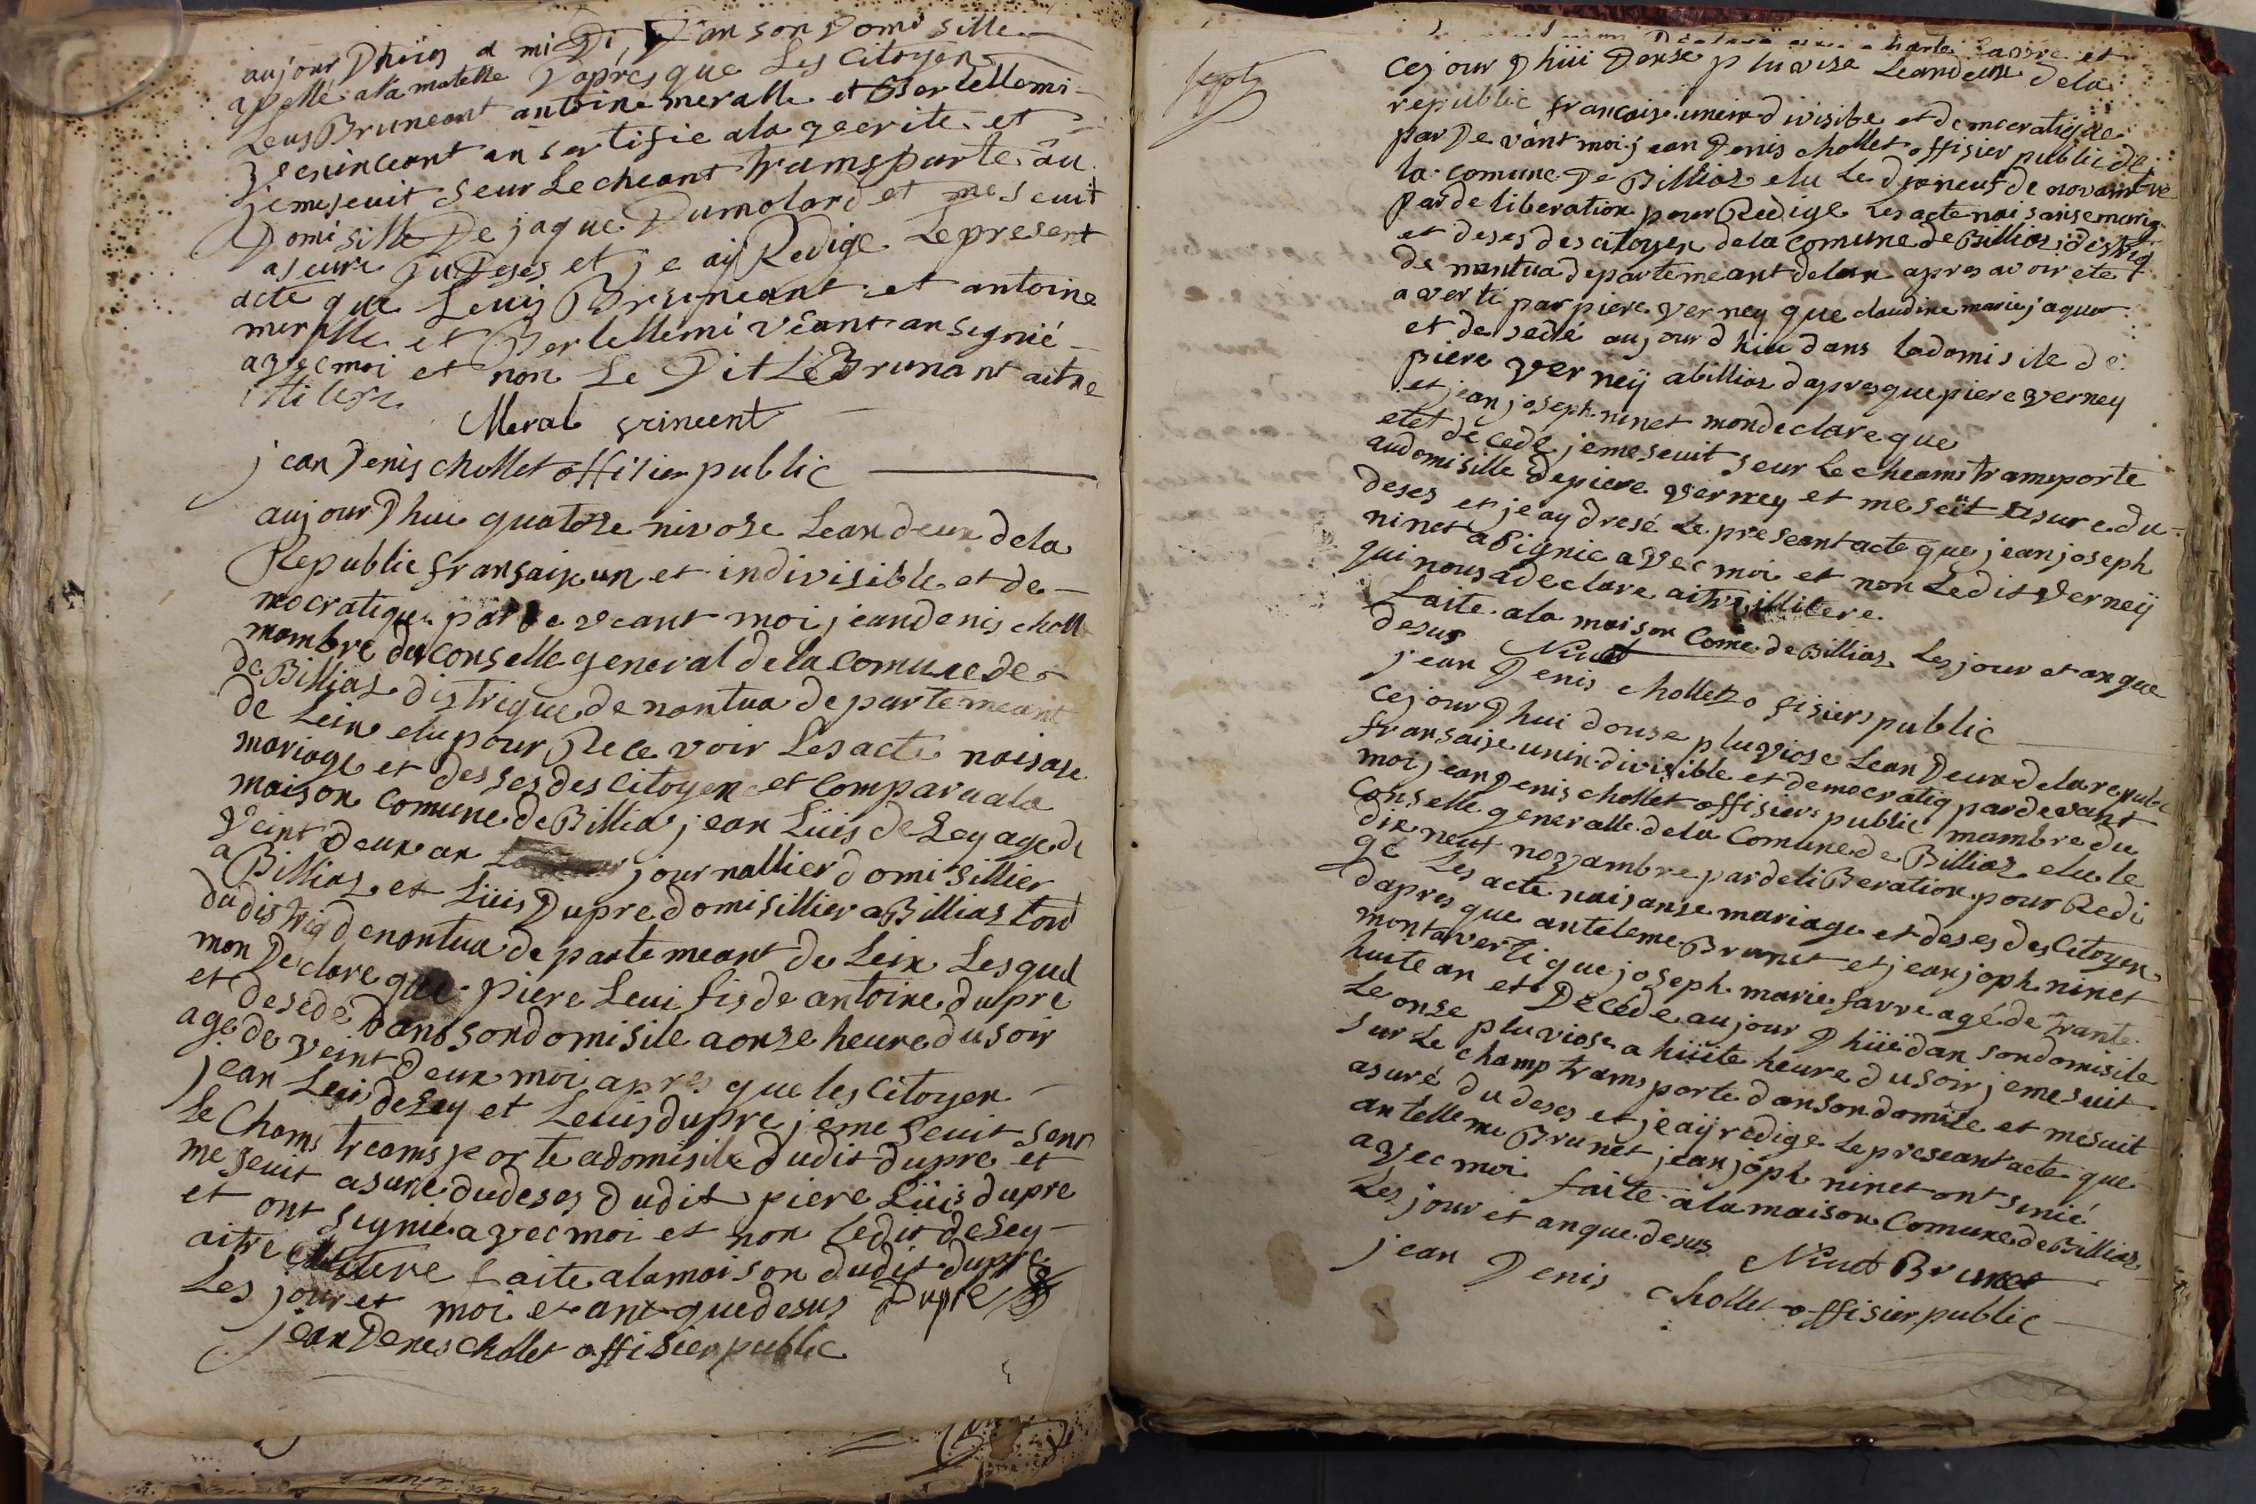 aujour Dhuis a midi Dan son Domisille
apelle ala matelle Dapres que Les Citoyen
Leus Bruneant antoine meralle et Bertellemi
veninceant an sertifie ala veerite et
jemeseuit seur Lecheant transporte au
Domisille De jaque Dumolard et me seuit
aseure du Deses et je aij Redige Lepresent
acte que Leuis Bruneant et antoine
meralle et Bertellemi veant an segnié
avec moi et non Le Dit Le Brunant aitre
Meral vincent
jean Denis chollet offisier public
aujour Dhui quatose nivose Lean deux dela
Republic fransaise un et indivisible et de
mocratique par de veant moi jean denis choll
mambre du conselle general de la comune de
de Billiaz distrique de nantua departemeant
de Lein elu pour Recevoir Les acte naisase
mariage et desses des citoyen et comparu ala
maison comune de Billia jean Luis deLey age de
veint deux an journallier domisillier
a Billiaz et Luis Dupre domisillier a Billiaz tou
du distriq de nantua departemeant de Lein Lesquel
mon Declare que piere Leui fis de antoine dupre
et desede Dans son domisile a onse heure du soir
age de veint deux moi apres que les citoyen
jean Leuis deLey et Leuis dupre jeme seuit seur
Le Chams treamsporte adomisile dudit dupre et
me seuit asure dudeses dudit piere Luis dupre
et ont signie avec moi et non Ledit deLey
aitre faite ala maison dudit dupre
Les jour et moi et ant quedesus Dupre
jean Denis chollet offisier public
sept
cejour Dhui Douse pluviose Leandeux dela
republic francaise unein divisible et democratique
par De vant moi jean Denis chollet offisier public de
la comune De Billiaz elu Le dixneuf de novambre
par deliberation pour Redige Les acte naisanse mariag
et deses des citoyen dela comune de Billiaz distriq
de nantua departemeant delein apres avoir ete
averti par piere verney que claudine marie jaquo
et de sede aujourd hiu dans ladomisile de
piere verneij abillias dapres que piere verney
et jean joseph ninet mon declare que
etet de cede jemeseuit seur Le cheams transporte
audomisille depiere verney et meseuit asure du
deses et jeay dresé Le preseant acte que jean joseph
ninet a signie avec moi et non Ledit verneij
qui nous a declare aitre illitere
faite ala maison Come de Billiaz Les jour et an que
desus Ninet
jean Denis chollet ofisiers public
cejour Dhui douse pluviose Lean Deux dela republ
fransaise unin divisible et democratiq pardevant
moi jean Denis chollet offisiers public mambre du
Conselle generalle dela Comune de Billiaz elu le
dix neuf novambre par deliberation pour Redi
ge Les acte naisanse mariage et deses des Citoyen
dapres que anteleme Brunet et jean joph ninet
mont averti que joseph marie favre agé de trante
huite an et Decede aujour Dhiu dan son domisile
Le onse pluviose a hüite heure du soir jemesuit
sur Le champ transporte dan son domile et mesuit
asuré du deses et je aij redige Le preseant acte que
antelleme Brunet jean joph ninet ont sinié
avec moi faite ala maison Comune de Billiaz
Les jour et an que desus Ninet Brunet
jean Denis chollet offisier public